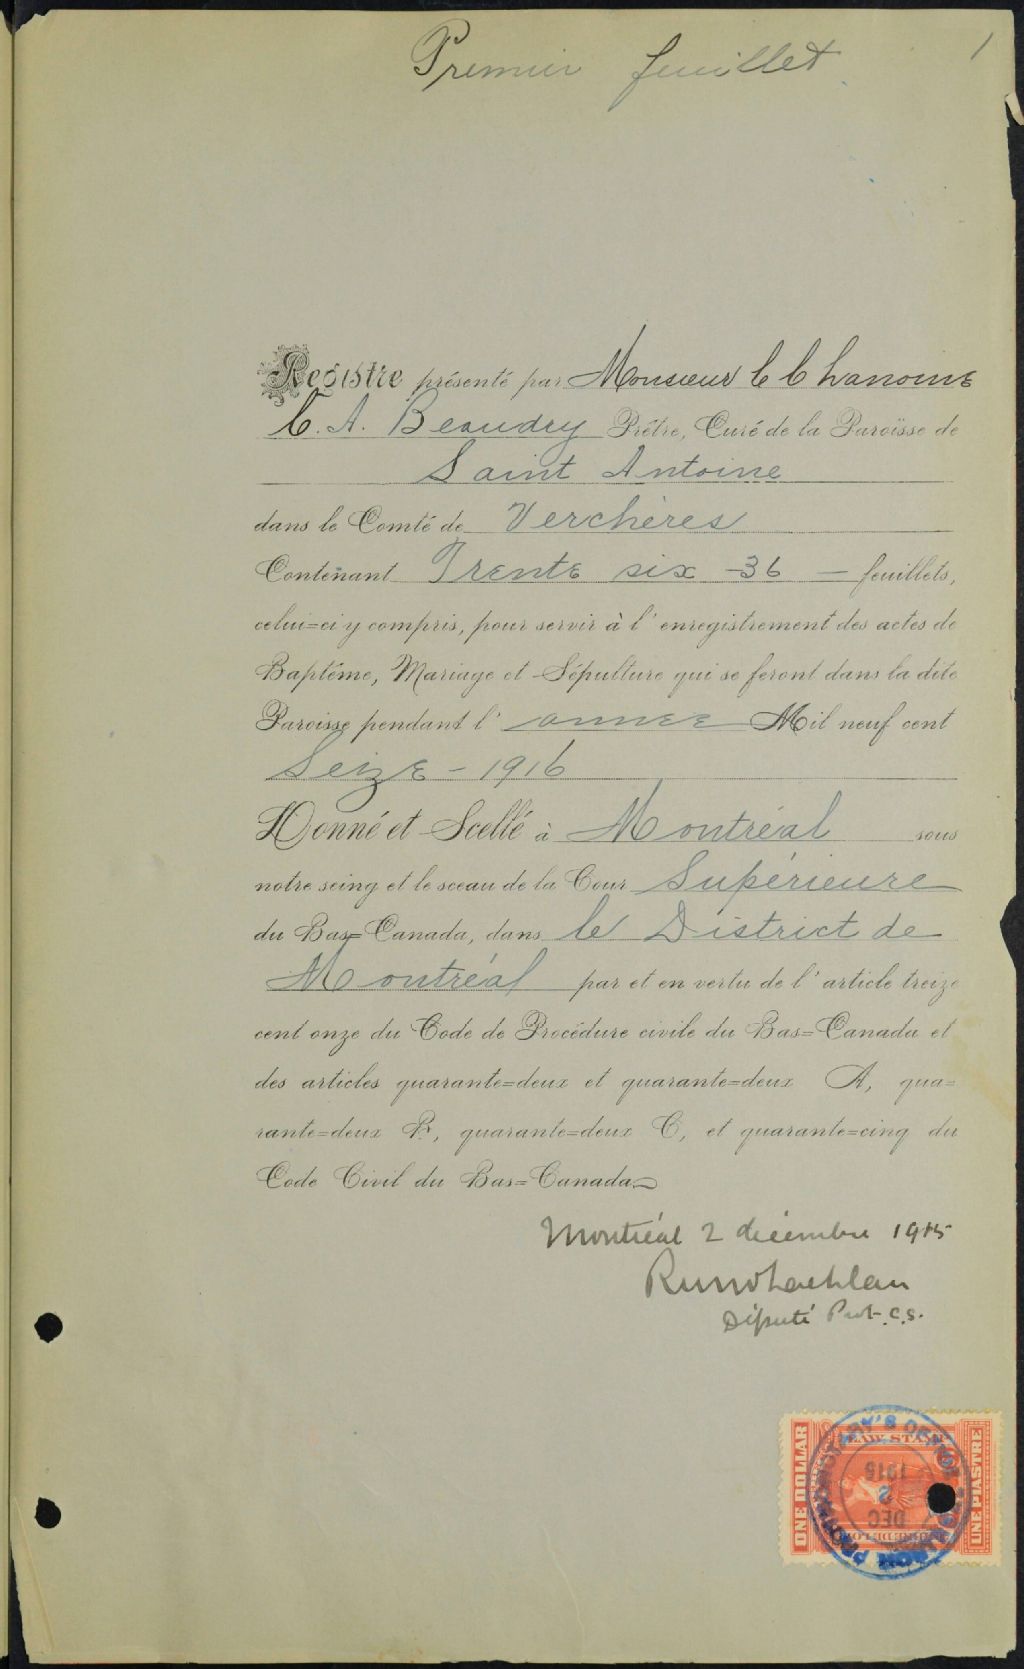 Premier feuillet
1
Registre présenté par Monsieur le Chanoine
C. A. Beaudry Prêtre, Curé de la Paroisse de
Saint Antoine
dans le Comté de Verchères
Contenant Trente six - 36 - feuillets,
celui=ci y compris, pour servir à l'enregistrement des actes de
Baptême, Mariage et Sépulture qui se feront dans la dite
Paroisse pendant l'année Mil neuf cent
Seize - 1916
Donné et Scellé à Montréal sous
notre seing et le sceau de la Cour Supérieure
du Bas=Canada, dans le District de
Montréal par et en vertu de l'article treize
cent onze du Code de Procédure civile du Bas=Canada et
des articles quarante=deux et quarante=deux A, qua=
rante=deux B, quarante=deux C, et quarante=cinq du
Code Civil du Bas=Canada.
Montréal 2 décembre 1915
Député Prot. C.S.
ONE DOLLAR
LAW STAMP
UNE PIASTRE
PROTHONOTARY'S OFFICE
DEC
2
1915